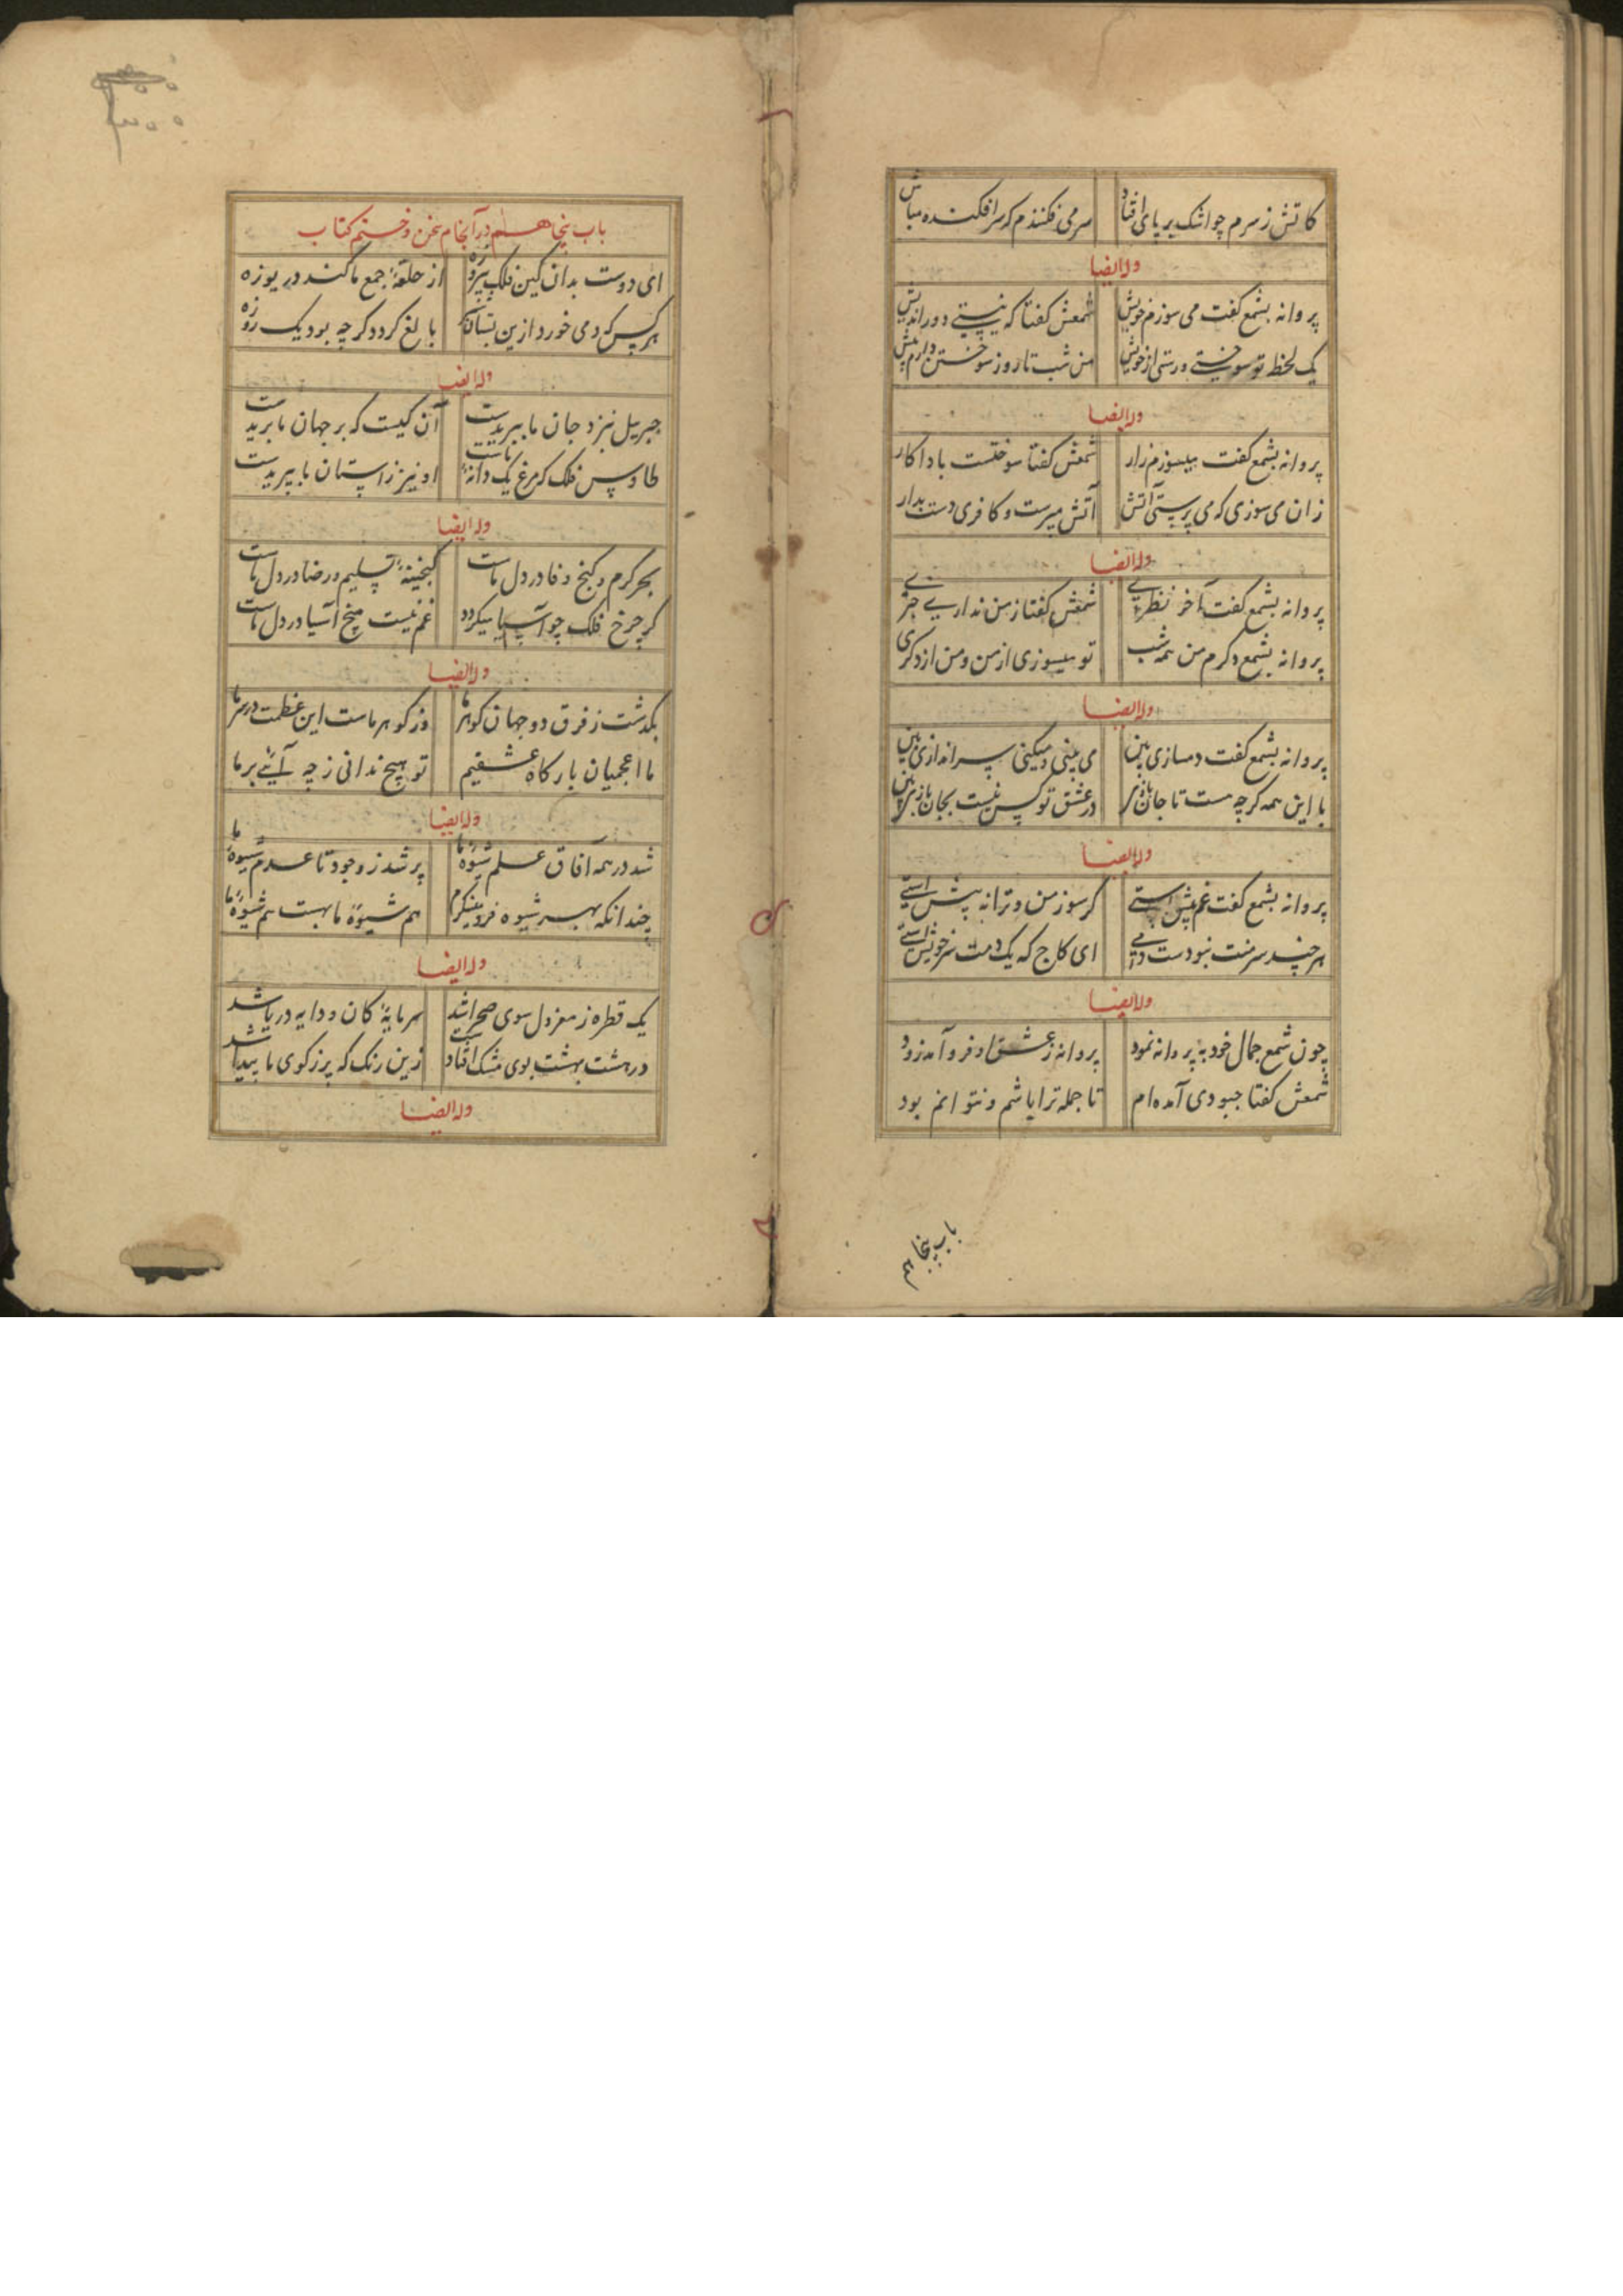 کاتش ز سرم چو اشک بر پای افتاد سر می فکنندم که سر افکنده مباش
وله ایضا
پروانه بشمع گفت می سوزم خویش شمعش گفتا که نیستی دور اندیش
یک لحظه تو سوختی و رستی از خویش من شب تا روز سوختن دارم پیش
وله ایضا
پروانه بشمع گفت میسوزم زار شمعش گفتا سوختنت باداکار
زان می سوزی که می پرستی آتش آتش مپرست و کافری دست بدار
وله ایضا
پروانه بشمع گفت آخر نظری شمعش گفتا ز من نداری خبری
پروانه بشمع و کرم من همه شب تو میسوزی از من و من از دکری
وله ایضا
پروانه بشمع گفت دمسازی بین می بینی و میکنی سراندازی بین
با این همه کرچه هست تا جان در عشق تو کس نیست بجان بازی بین
وله ایضا
پروانه بشمع گفت غم پیش استی کر سوز من و ترا نه پیش استی
هر چند سر منت نبودست دمی ای کاج که یک دمت سر خویش استی
وله ایضا
چون شمع جمال خود به پروانه نمود پروانه ز عشق او فرو آمد زود
شمعش گفتا چبودی آمده ام تا جمله ترا باشم و نتوانم بود
باب پنجا
باب پنجاهم در آنجام سخن و ختم کتاب
ای دوست بدان کین فلک پیروزه از حلقهٔ جمع ما کند دریوزه
هر کس که دمی خورد ازین بستان بالغ کردد کر چه بود یک روزه
وله ایضا
جبریل نیزد جان ما ببریدست آن کیست که بر جهان ما بریدست
طاوس فلک که مرغ یک دانهٔ ماست او نیز ز آستان ما ببریدست
وله ایضا
بحر کرم و کنج وفا در دل ماست کنجینهٔ تسلیم و رضا در دل ماست
کر چرخ فلک چو آسیا میکردد غم نیست میخ آسیا در دل ماست
وله ایضا
بکذشت ز فرق دو جهان کوهر ما وز کوهر ماست این عظمت در سر ما
ما اعجمیان بارکاه عشقیم تو هیچ ندانی ز چه آیٔی بر ما
وله ایضا
شد در همه آفاق علم شیوهٔ ما پر شد ز وجود تا عدم شیوهٔ ما
چندانکه بهر شیوه فرو مینکرم هم شیوهٔ ما بهست هم شیوهٔ ما
وله ایضا
یک قطره ز مغز دل سوی صحرا شد سرمایهٔ کان و دایه دریا شد
در هشت بهشت بوی مشک افتاد زین رنک که بر ز کوی ما پیدا شد
وله ایضا